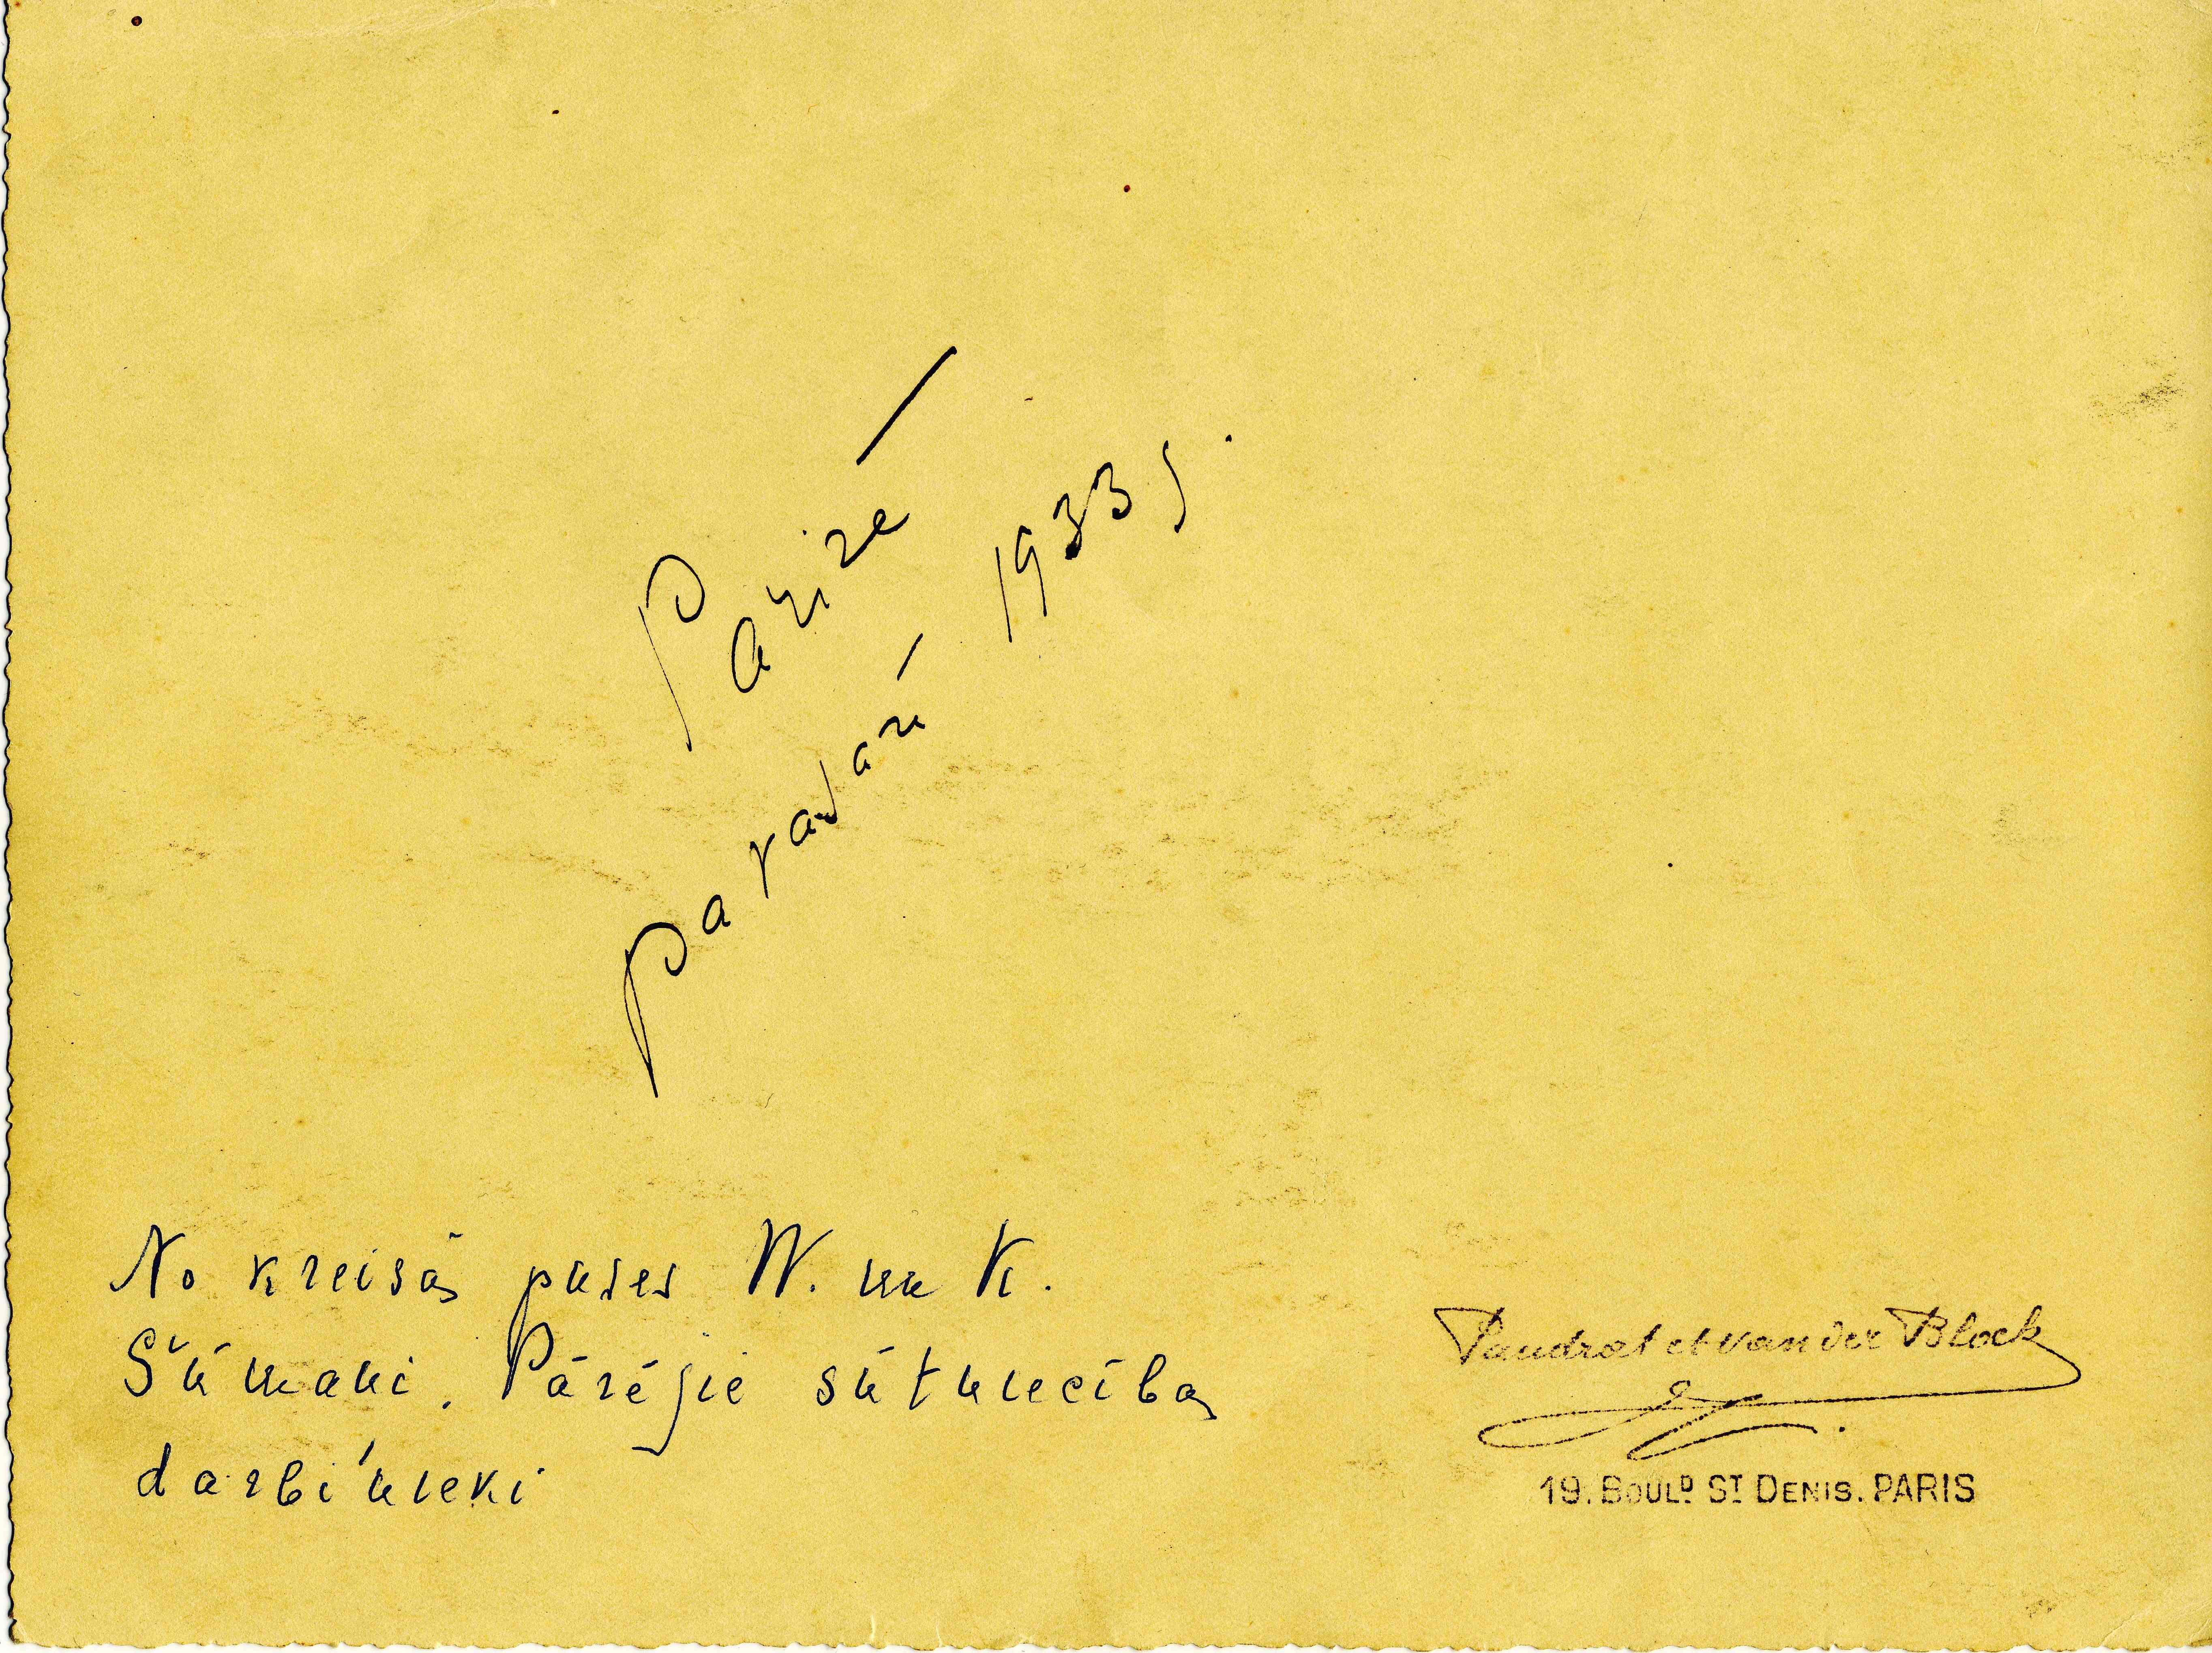 Parizē
pavasarī 1933 g.
No kreisās puses W. un K.
Šūmani. Pārējie sūtniecības
darbinieki
Paudrat et Van der Block
19. BOULD ST DENIS. PARIS